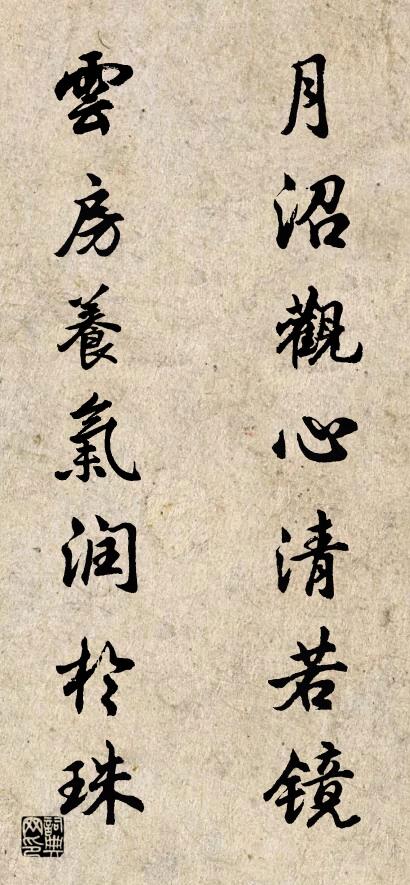 月沼觀心清若镜
雲房養氣润於珠
詞典
网印